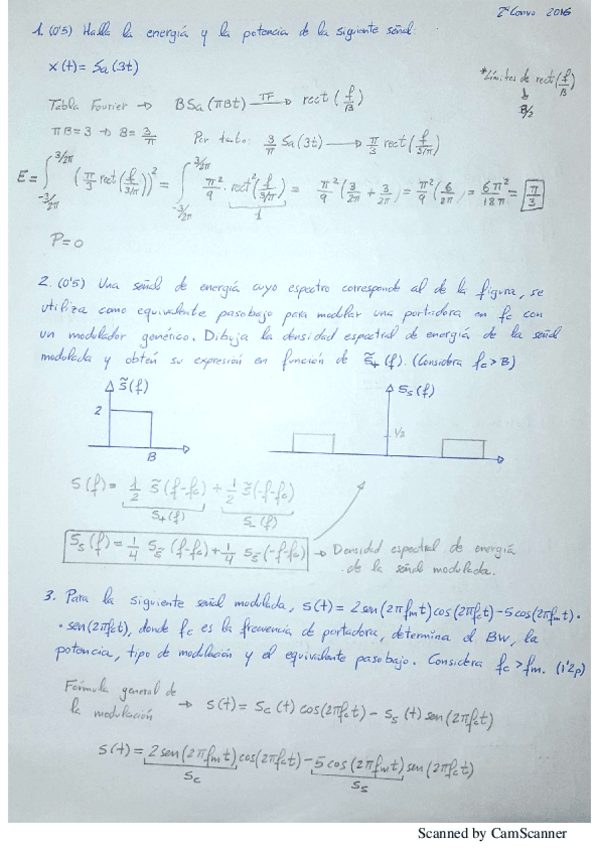 2ª Convo 2016
1. (0'5) Halla la energía y la potencia de la siguiente señal:
x(t) = Sa(3t)
*Límites de rect(f/B)
B/2
Tabla Fourier → BSa(πBt) —TF→ rect(f/B)
πB = 3 → B = 3/π Por tanto: 3/π Sa(3t) → π/3 rect(f/(3/π))
E = ∫_{-3/2π}^{3/2π} (π/3 rect(f/(3/π)))² = ∫_{-3/2π}^{3/2π} π²/9 · rect²(f/(3/π)) = π²/9 (3/2π + 3/2π) = π²/9 (6/2π) = 6π²/18π = π/3
1
P = 0
2. (0'5) Una señal de energía cuyo espectro corresponde al de la figura, se
utiliza como equivalente pasobajo para modular una portadora en fc con
un modulador genérico. Dibuja la densidad espectral de energía de la señal
modulada y obtén su expresión en función de S̃₊(f). (Considera fc > B)
S̃(f)
2
B
Ss(f)
1/2
S(f) = 1/2 S̃(f-fc) + 1/2 S̃(-f-fc)
S₊(f) S₋(f)
Ss(f) = 1/4 Ss̃(f-fc) + 1/4 Ss̃(-f-fc) → Densidad espectral de energía
de la señal modulada.
3. Para la siguiente señal modulada, s(t) = 2sen(2πfmt)cos(2πfct) - 5cos(2πfmt)·
·sen(2πfct), donde fc es la frecuencia de portadora, determina el BW, la
potencia, tipo de modulación y el equivalente pasobajo. Considera fc > fm. (1'2p)
Fórmula general de
la modulación → s(t) = Sc(t) cos(2πfct) - Ss(t) sen(2πfct)
s(t) = 2sen(2πfmt)cos(2πfct) - 5cos(2πfmt)sen(2πfct)
Sc Ss
Scanned by CamScanner